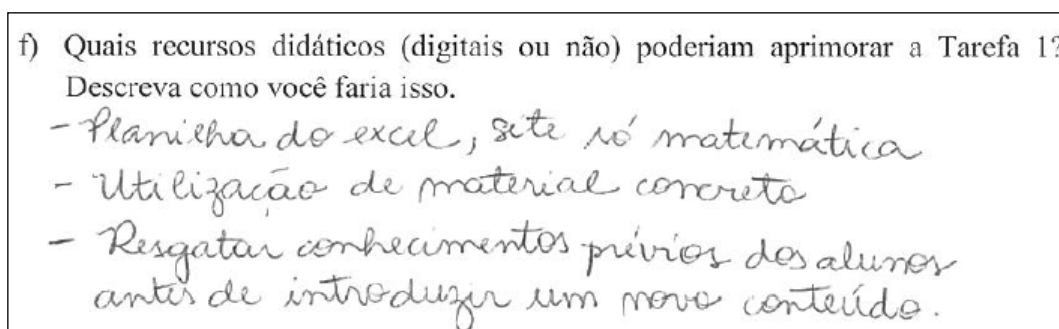 f) Quais recursos didáticos (digitais ou não) poderiam aprimorar a Tarefa 1?
Descreva como você faria isso.
- Planilha do excel, site só matemática
- Utilização de material concreto
- Resgatar conhecimentos prévios dos alunos
antes de introduzir um novo conteúdo.